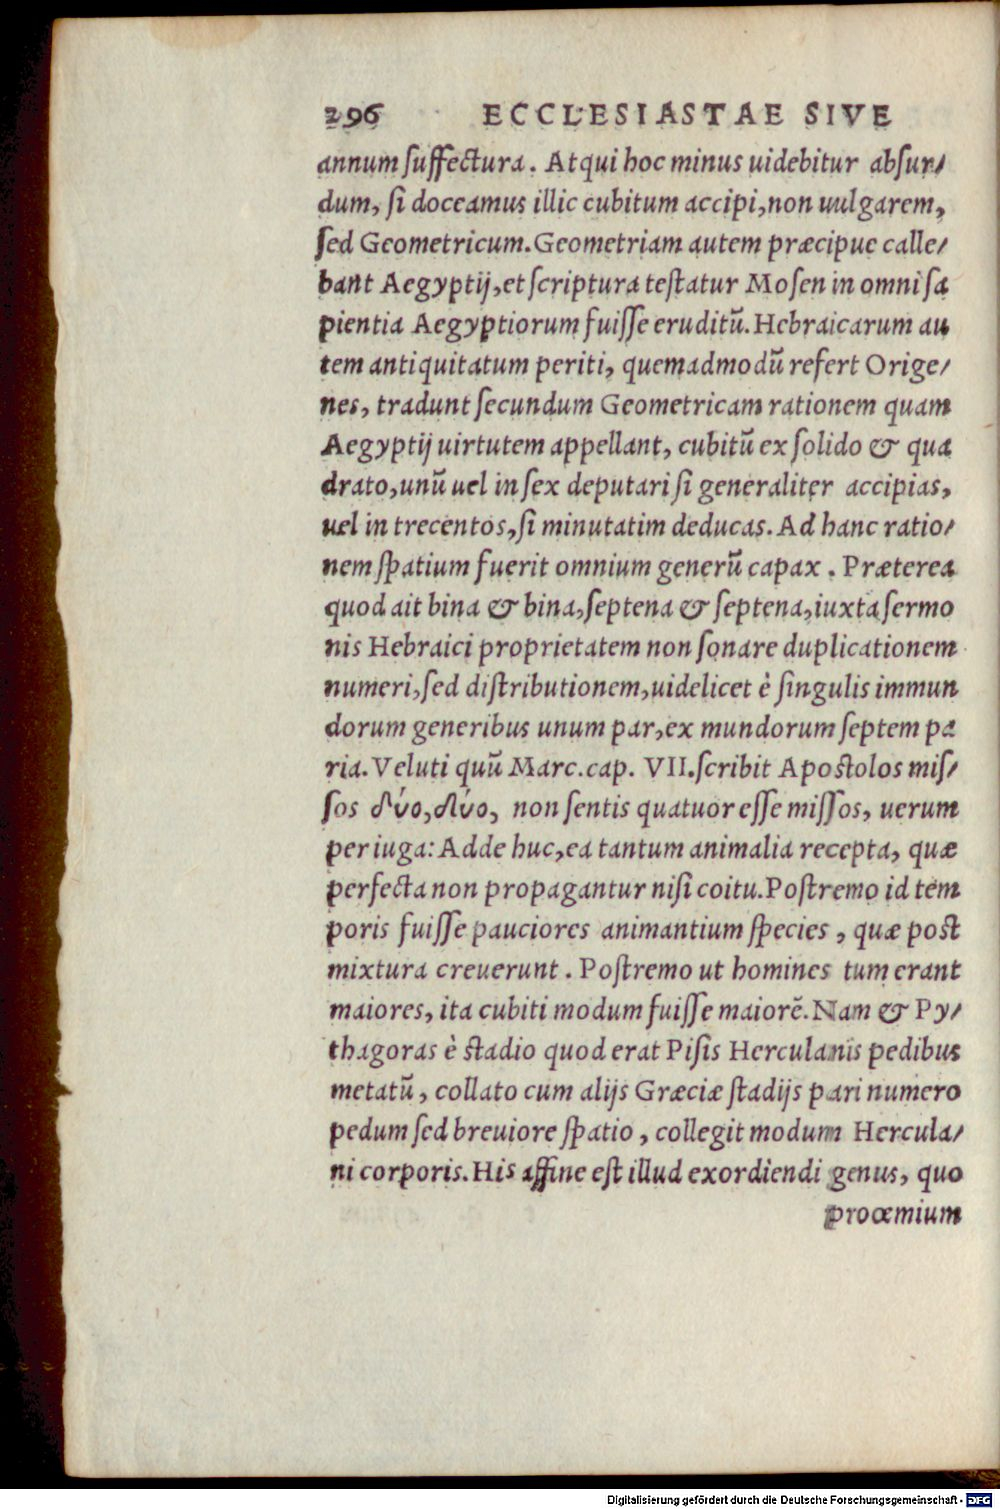 296 ECCLESIASTAE SIVE
annum ſuffectura. Atqui hoc minus uidebitur abſur/
dum, ſi doceamus illic cubitum accipi, non uulgarem,
ſed Geometricum. Geometriam autem præcipue calle/
bant Aegyptij, et ſcriptura teſtatur Moſen in omni ſa
pientia Aegyptiorum fuiſſe eruditū. Hebraicarum au
tem antiquitatum periti, quemadmodū refert Orige/
nes, tradunt ſecundum Geometricam rationem quam
Aegyptij uirtutem appellant, cubitū ex ſolido & qua
drato, unū uel in ſex deputari ſi generaliter accipias,
uel in trecentos, ſi minutatim deducas. Ad hanc ratio/
nem ſpatium fuerit omnium generū capax. Præterea
quod ait bina & bina, ſeptena & ſeptena, iuxta ſermo
nis Hebraici proprietatem non ſonare duplicationem
numeri, ſed diſtributionem, uidelicet è ſingulis immun
dorum generibus unum par, ex mundorum ſeptem pa
ria. Veluti quū Marc. cap. VII. ſcribit Apoſtolos miſ/
ſos δύο, δύο, non ſentis quatuor eſſe miſſos, uerum
per iuga: Adde huc, ea tantum animalia recepta, quæ
perfecta non propagantur niſi coitu. Poſtremo id tem
poris fuiſſe pauciores animantium ſpecies, quæ poſt
mixtura creuerunt. Poſtremo ut homines tum erant
maiores, ita cubiti modum fuiſſe maiorē. Nam & Py/
thagoras è ſtadio quod erat Piſis Herculanis pedibus
metatū, collato cum alijs Græciæ ſtadijs pari numero
pedum ſed breuiore ſpatio, collegit modum Hercula/
ni corporis. His affine eſt illud exordiendi genus, quo
proœmium
Digitalisierung gefördert durch die Deutsche Forschungsgemeinschaft - DFG